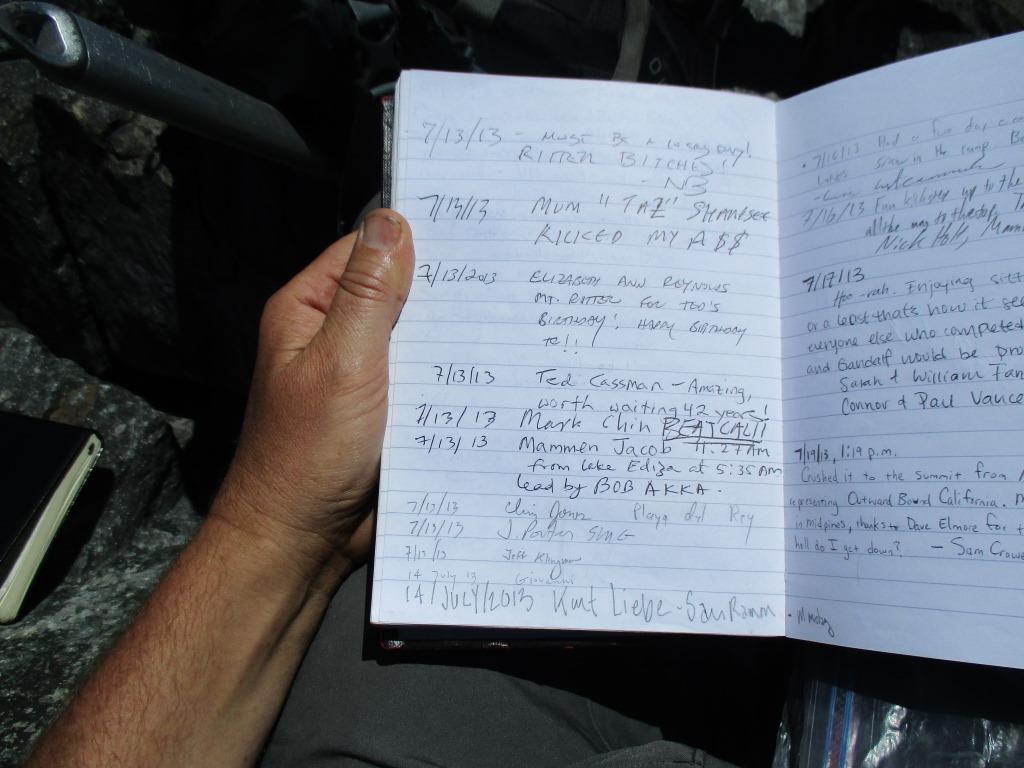 7/13/13 - MUST BE A LUCKY DAY!
RITTER BITCHES!
- NB
7/13/13 MUM "TAZ"
KICKED MY A$$
7/13/2013 ELIZABETH ANN REYNOLDS
MT. RITTER FOR TED'S
BIRTHDAY! HAPPY BIRTHDAY
TC!!
7/13/13 Ted Cassman - Amazing,
worth waiting 42 years!
7/13/13 Mark Chin BEAT CAL!!
7/13/13 Mammen Jacob 11:27 AM
from Lake Ediza at 5:35 AM
lead by BOB AKKA.
7/13/13 Chris Jones Playa del Rey
7/13/13 J. SMG
7/13/13 Jeff Klingman
14 July 13 Giovanni
14/JULY/2013 Kurt Liebe - San Ramon
7/16/13 Had a fun day
snow in the
7/16/13 Fun kickstep up to the
all the way to the top.
Nick Holt,
7/17/13
Hoo-rah. Enjoying sitt
or a least that's how it see
everyone else who completed
and Gandalf would be pro
Sarah & William Fan
Connor & Paul Vance
7/19/13, 1:19 p.m.
Crushed it to the summit from
representing Outward Bound California.
in midpines, thanks to Dave Elmore for t
hell do I get down? - Sam Crowe